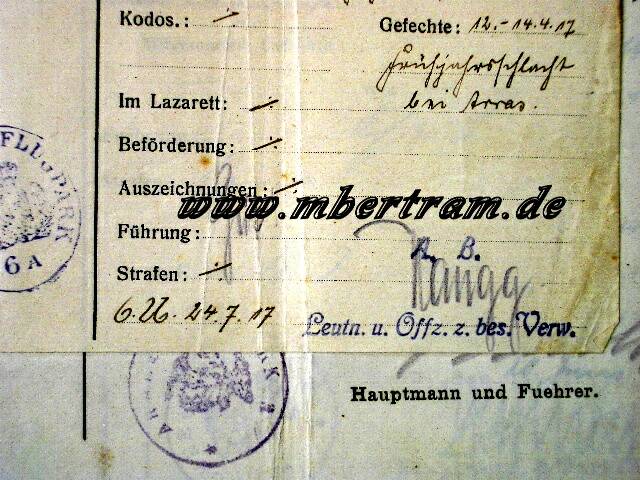 Kodos.: ·/· Gefechte: 12.-14.4.17
Frühjahrsschlacht
Im Lazarett: ·/· bei Arras.
Beförderung: ·/·
Auszeichnungen: ·/·
www.mbertram.de
Führung:
A. B.
Strafen: ·/·
24.7.17
Leutn. u. Offz. z. bes. Verw.
Hauptmann und Fuehrer.
FLUGPARK
6 A